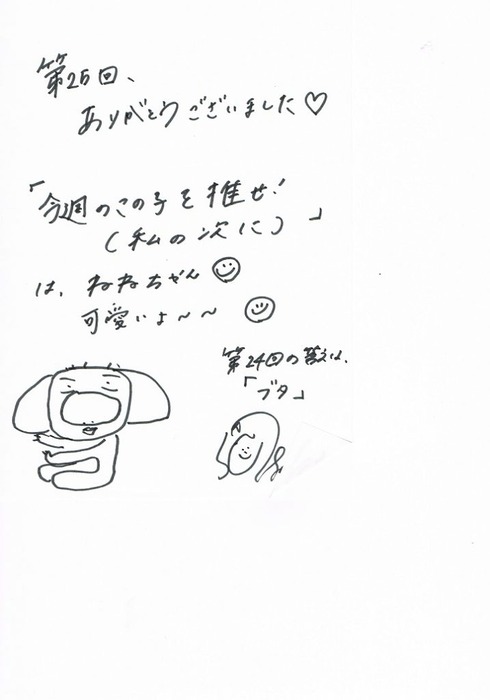 第25回、
ありがとうございました♡
「今週のこの子を推せ!
(私の次に)」
は、ねねちゃん
可愛いよ〜〜
第24回の答えは、
「ブタ」